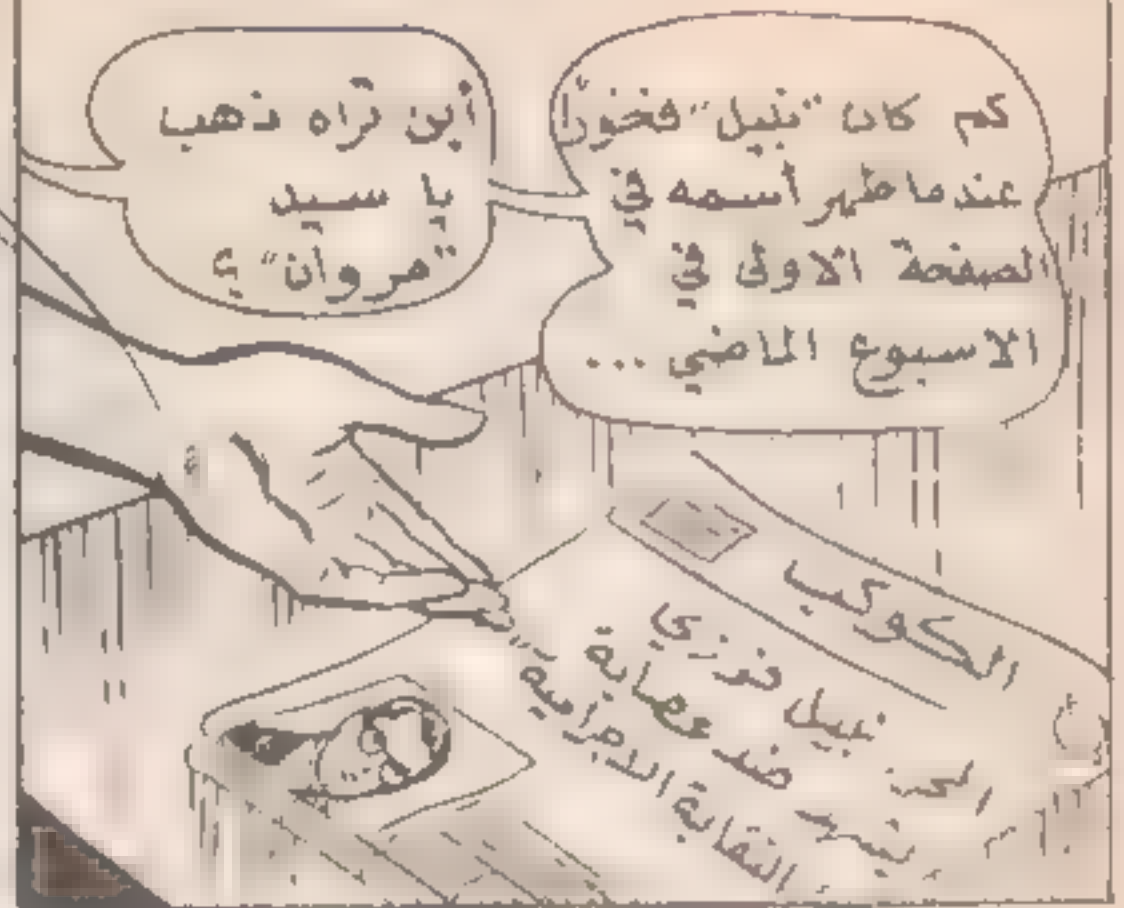 كم كان "نبيل" فخورًا
عندما ظهر أسمه في
الصفحة الاولى في
الاسبوع الماضي ...
أين تراه ذهب
يا سيد
"مروان" ؟
الكوكب
نبيل فوزي
ضد عصابة
النقابة الاجرامية